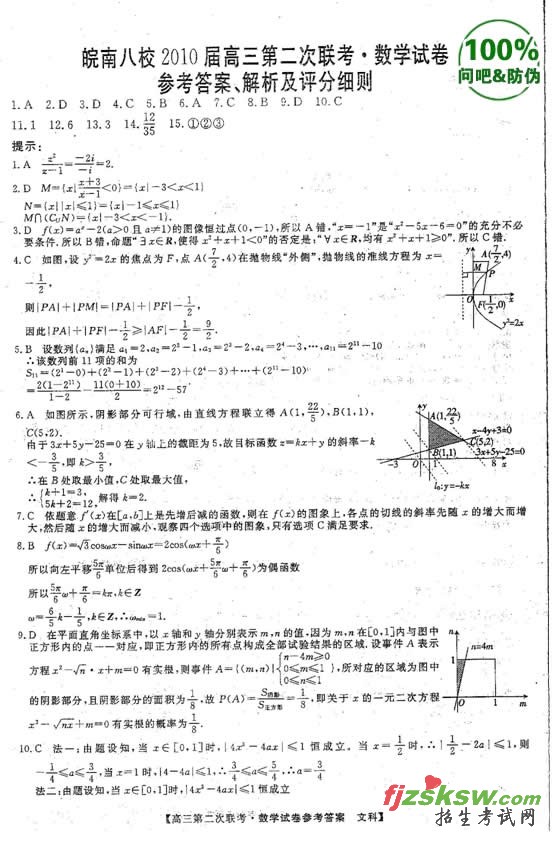 皖南八校 2010 届高三第二次联考·数学试卷
参考答案、解析及评分细则
100%
问吧&防伪
1. A 2. D 3. D 4. C 5. B 6. A 7. C 8. B 9. D 10. C
11. 1 12. 6 13. 3 14. 12/35 15. ①②③
提示:
1. A z²/(z-1)=-2i/-i=2.
2. D M={x|(x+3)/(x-1)<0}={x|-3<x<1}
N={x||x|≤1}={x|-1≤x≤1}
M∩(C_U N)={x|-3<x<-1}.
3. D f(x)=aˣ-2(a>0 且 a≠1)的图像恒过点(0,-1),所以 A 错,“x=-1”是“x²-5x-6=0”的充分不必
要条件,所以 B 错,命题“∃x∈R,使得 x²+x+1<0”的否定是:“∀x∈R,均有 x²+x+1≥0”.所以 C 错.
4. C 如图,设 y²=2x 的焦点为 F,点 A(7/2,4)在抛物线“外侧”,抛物线的准线方程为 x=
-1/2,
则|PA|+|PM|=|PA|+|PF|-1/2,
因此|PA|+|PF|-1/2≥|AF|-1/2=9/2.
y A(7/2,4)
M P
O F(1/2,0) x
y²=2x
5. B 设数列{aₙ}满足 a₁=2,a₂=2²-1,a₃=2³-2,a₄=2⁴-3,…,a₁₁=2¹¹-10
∴该数列前 11 项的和为
S₁₁=(2¹-0)+(2²-1)+(2³-2)+(2⁴-3)+…+(2¹¹-10)
=2(1-2¹¹)/(1-2)-11(0+10)/2=2¹²-57
6. A 如图所示,阴影部分可行域,由直线方程联立得 A(1,22/5),B(1,1),
C(5,2).
由于 3x+5y-25=0 在 y 轴上的截距为 5,故目标函数 z=kx+y 的斜率-k
<-3/5,即 k>3/5,
∴在 B 处取最小值,C 处取最大值,
∴{k+1=3, 5k+2=12, 解得 k=2.
y A(1,22/5)
x-4y+3=0
C(5,2)
B(1,1) 3x+5y-25=0
-3 O 8 x
l₀:y=-kx
7. C 依题意 f′(x)在[a,b]上是先增后减的函数,则在 f(x)的图象上,各点的切线的斜率先随 x 的增大而增
大,然后随 x 的增大而减小,观察四个选项中的图象,只有选项 C 满足要求.
8. B f(x)=√3cosωx-sinωx=2cos(ωx+π/6)
所以向左平移5π/6单位后得到 2cos(ωx+5π/6ω+π/6)为偶函数
所以5π/6ω+π/6=kπ,k∈Z
ω=6/5k-1/5,k∈Z,∴ω_min=1.
9. D 在平面直角坐标系中,以 x 轴和 y 轴分别表示 m,n 的值,因为 m,n 在[0,1]内与图中
正方形内的点一一对应,即正方形内的所有点构成全部试验结果的区域.设事件 A 表示
方程 x²-√n·x+m=0 有实根,则事件 A={(m,n)|{n-4m≥0 0≤m≤1 0≤n≤1},所对应的区域为图中
的阴影部分,且阴影部分的面积为1/8,故 P(A)=S阴影/S正方形=1/8,即关于 x 的一元二次方程
x²-√nx+m=0 有实根的概率为1/8.
n n=4m
1
O 1 m
10. C 法一:由题设知,当 x∈[0,1]时,|4x³-4ax|≤1 恒成立. 当 x=1/2时,∴|1/2-2a|≤1,则
-1/4≤a≤3/4,当 x=1 时,|4-4a|≤1,∴3/4≤a≤5/4,∴a=3/4
法二:由题设知,当 x∈[0,1]时,|4x³-4ax|≤1 恒成立
【高三第二次联考·数学试卷参考答案 文科】
fjzsksw.com
招生考试网